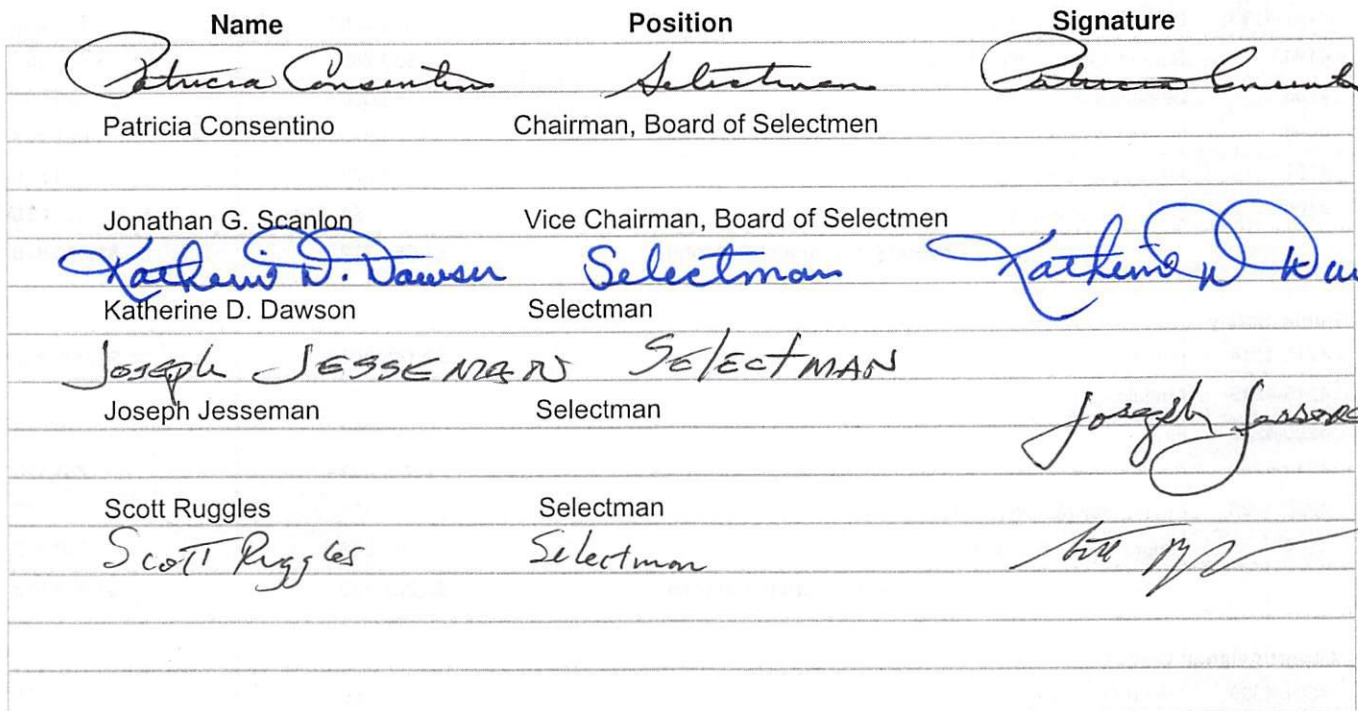 Name Position Signature
Patricia Consentino Selectman Patricia Consentino
Patricia Consentino Chairman, Board of Selectmen
Jonathan G. Scanlon Vice Chairman, Board of Selectmen
Katherine D. Dawson Selectman Katherine D Daw
Katherine D. Dawson Selectman
Joseph JESSEMAN SElEctMAN
Joseph Jesseman Selectman Joseph Jesseme
Scott Ruggles Selectman
Scott Ruggles Selectman